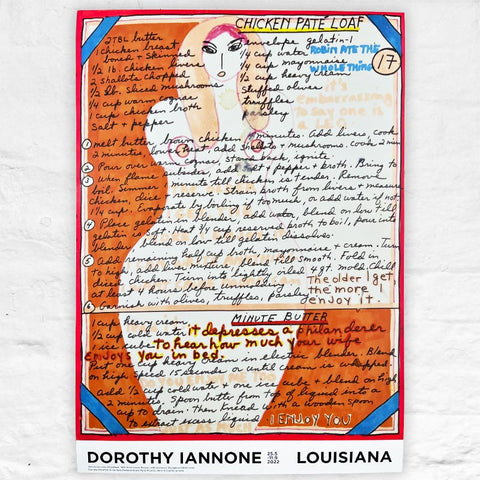 CHICKEN PATE LOAF
2 TBL butter
1 chicken breast
boned + skinned
1/2 lb. chicken livers
2 shallots chopped
1/2 lb. sliced mushrooms
1/4 cup warm
cup chicken broth
Salt + pepper
envelope gelatin-1
1/4 cup water
1/4 cup mayonnaise
1/2 cup heavy cream
Stuffed olives
truffles
parsley
ROBIN ATE THE
WHOLE THING
17
it's
embarrassing
to say one is
1 melt butter, brown chicken minutes. Add livers, cook
2 minutes, lower heat, add shallots + mushrooms. cook 2 min
2 Pour over corner, stand back, ignite.
3 When flame subsides, add salt + pepper + broth. Bring to
boil. Simmer minute till chicken is tender. Remove
chicken, dice + reserve. Strain broth from livers + measure
1 1/4 cup. Evaporate by boiling if too much, or add water if not.
4 Place gelatin in blender, add water, blend on low till
gelatin is soft. Heat 3/4 cup reserved broth to boil, pour into
blender, blend on low till gelatin dissolves.
5 Add remaining half cup broth, mayonnaise + cream. Turn
to high, add liver mixture, blend till smooth. Fold in
diced chicken. Turn into lightly oiled 4 qt. mold. Chill
at least 4 hours before unmolding
6 Garnish with olives, truffles, parsley
The older I get
the more I
enjoy it.
MINUTE BUTTER
1 cup heavy cream
1/2 cup cold water
1 ice cube
it depresses a philanderer
to hear how much your wife
enjoys you in bed.
Put one cup heavy cream in electric blender. Blend
on high speed 15 seconds or until cream is whipped.
Add 1/2 cup cold water + one ice cube + blend on high
2 minutes. Spoon butter from top of liquid into a
cup to drain. Then knead with a wooden spoon
to extract excess liquid.
I ENJOY YOU
DOROTHY IANNONE
25.5
-11.9
2022
LOUISIANA